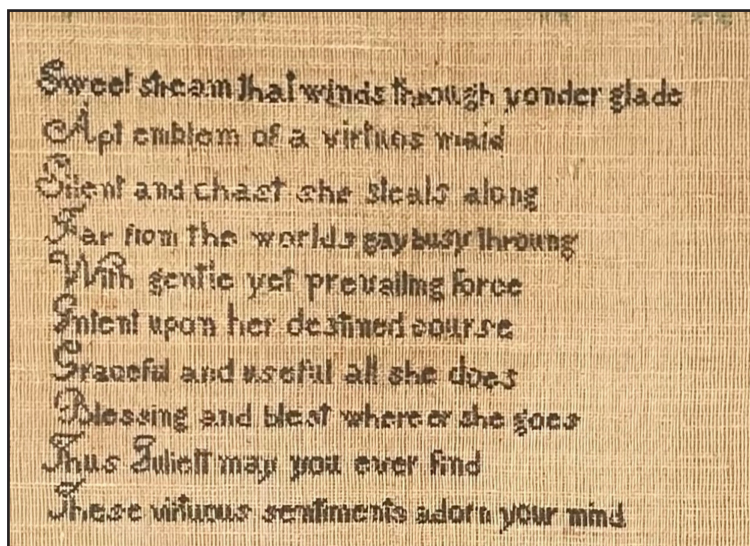 Sweet stream that winds through yonder glade
Apt emblem of a virtuos maid
Silent and chast she steals along
Far from the worlds gay busy throung
With gentle yet prevailing force
Intent upon her destined course
Graceful and useful all she does
Blessing and blest where er she goes
Thus Juliett may you ever find
These virtuous sentiments adorn your mind